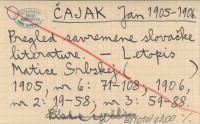 ČAJAK Jan 1905-1906.
Pregled savremene slovačke
literature. — Letopis
Matice Srbske
1905, nr 6: 71-108; 1906,
nr 2: 19-58; nr 3: 59-88.